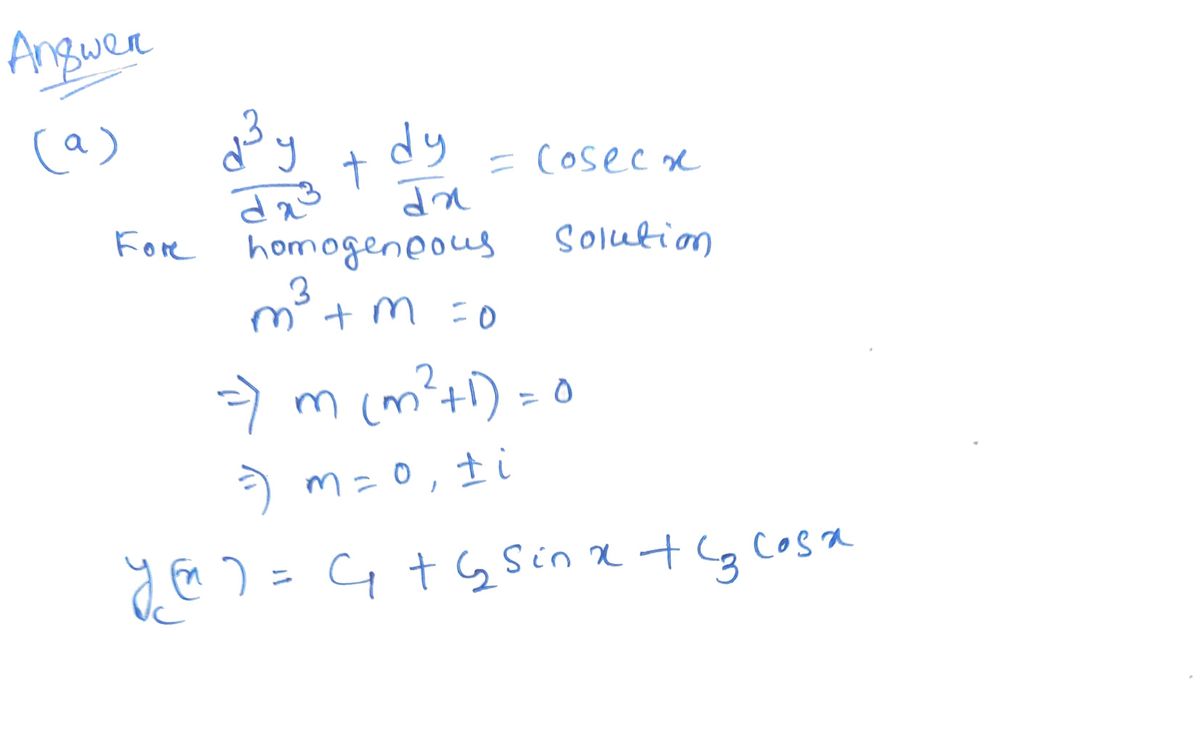 Answer
(a) d³y/dx³ + dy/dx = cosec x
For homogeneous solution
m³ + m = 0
⇒ m (m²+1) = 0
⇒ m = 0, ± i
y_c(x) = C₁ + C₂ sin x + C₃ cos x